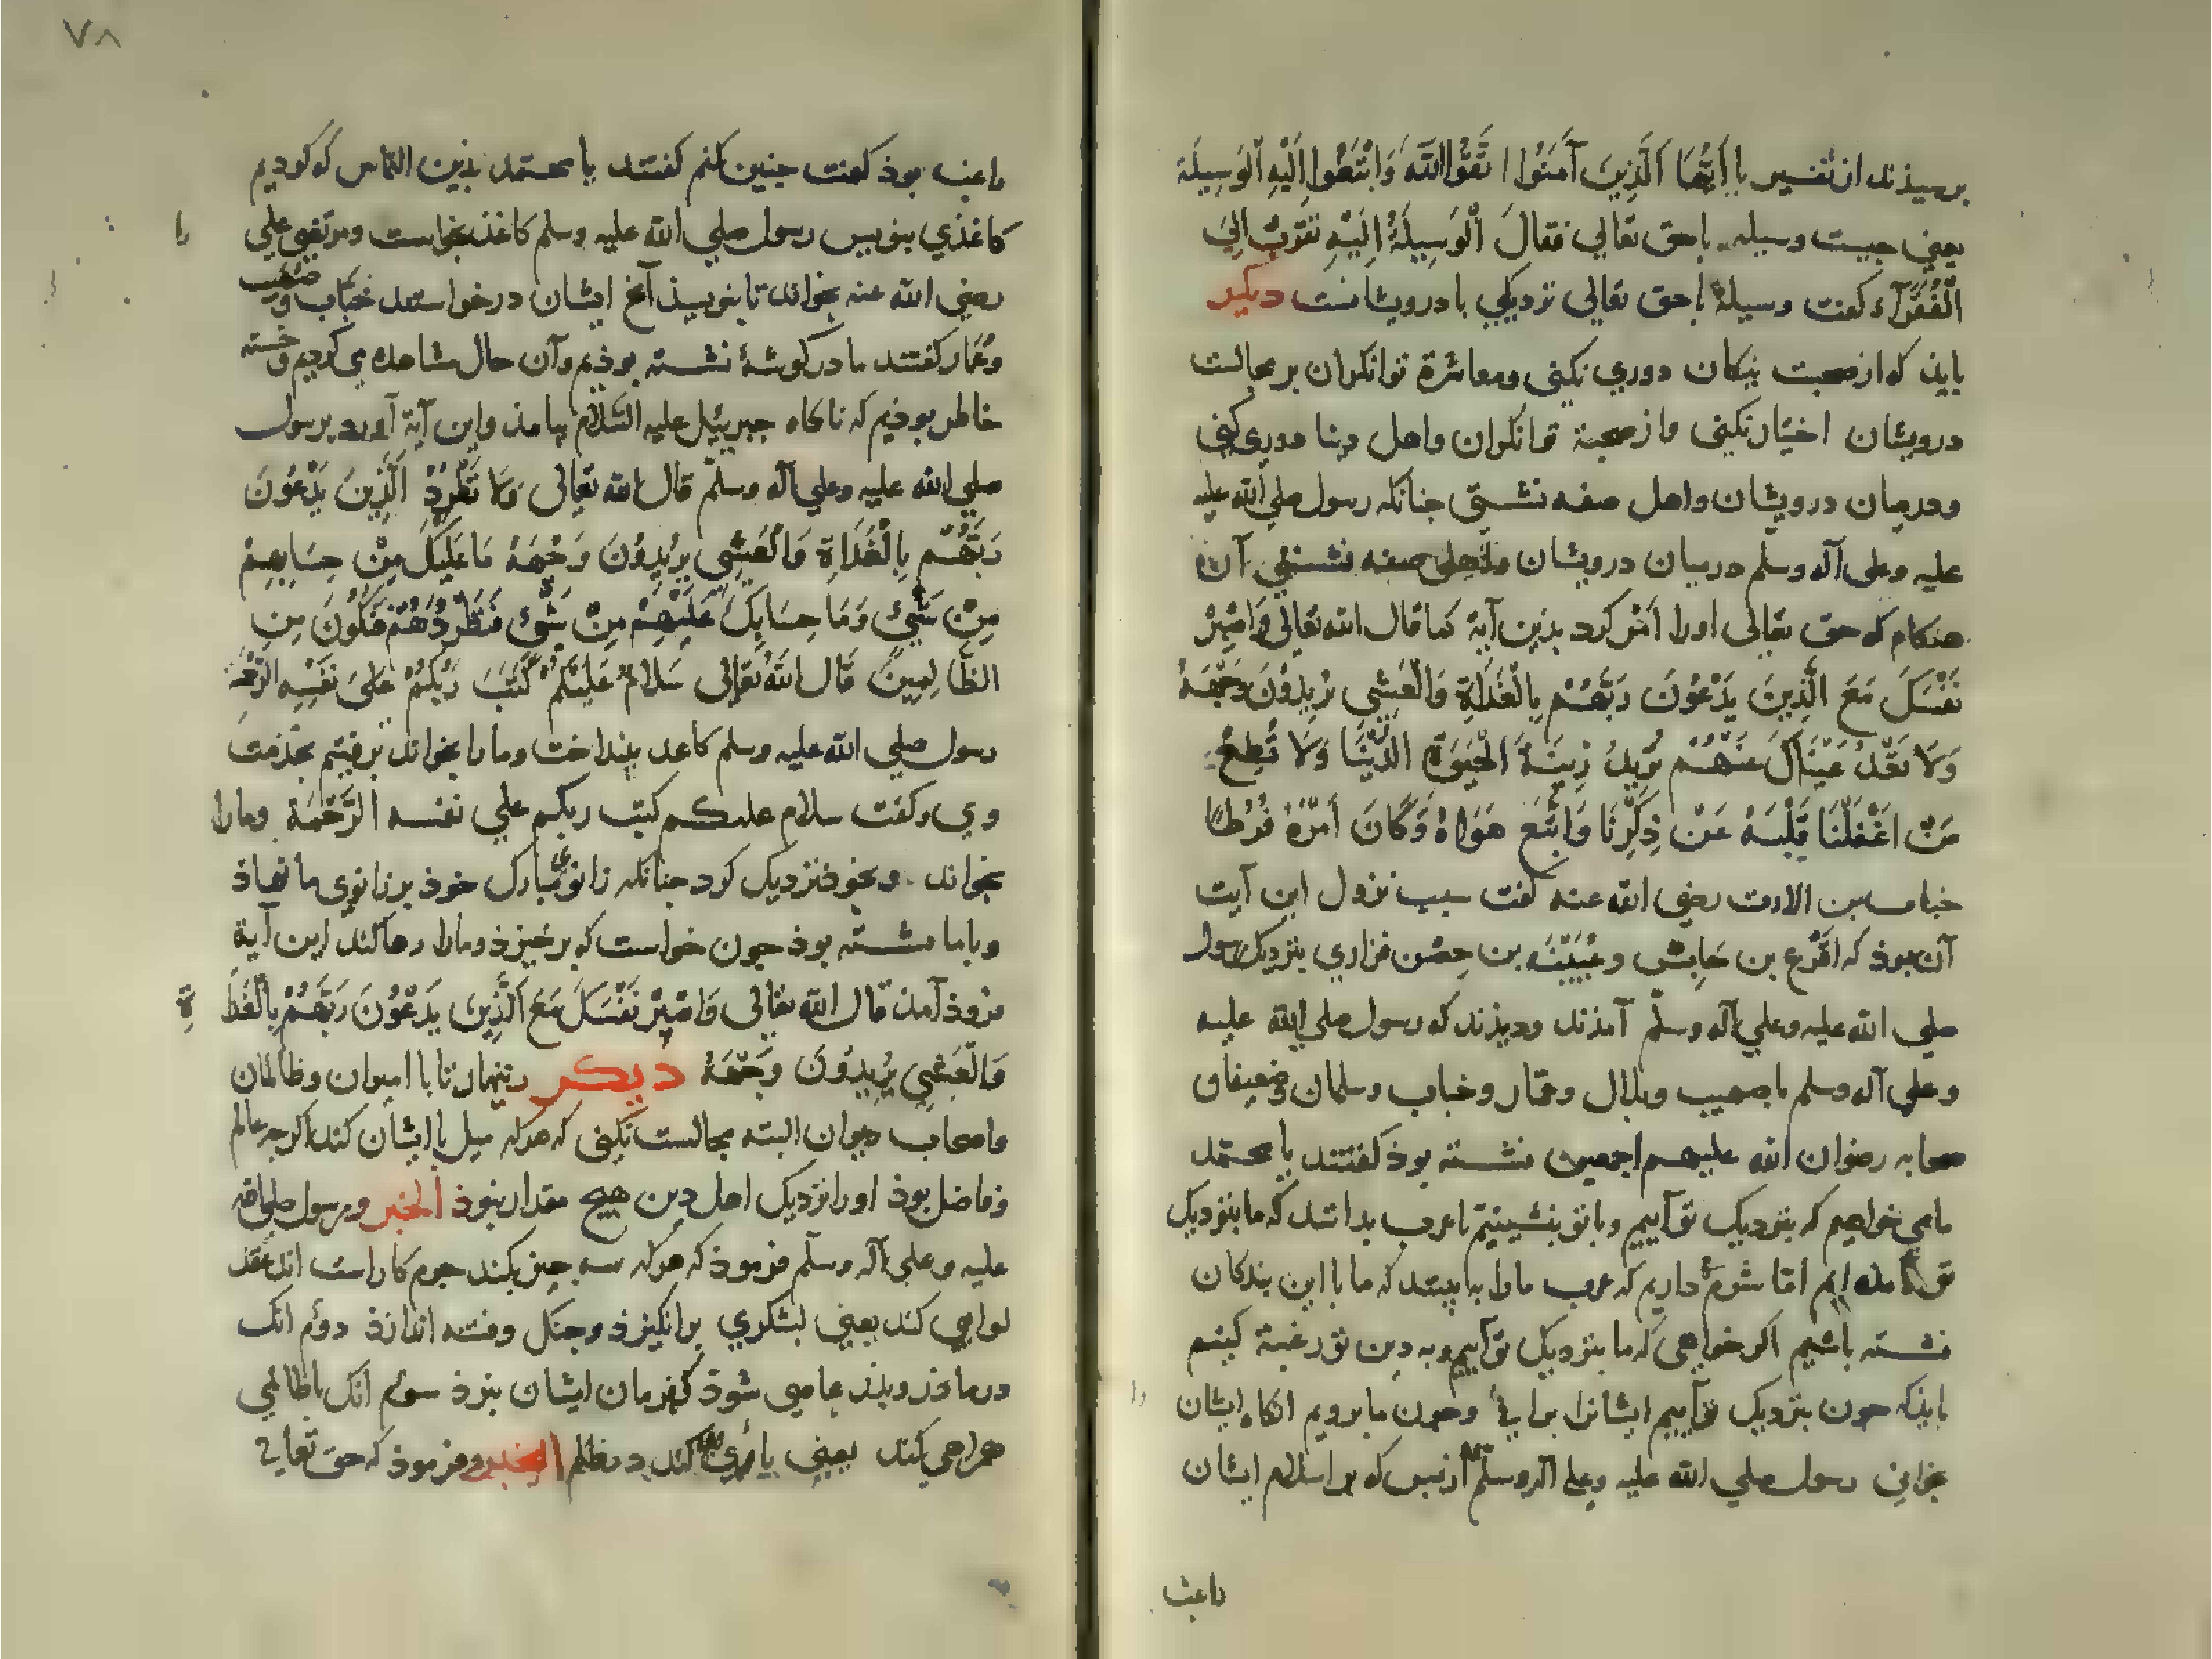 برسیذند از تفسیر یا اَیُّهَا الَّذِینَ آمَنُوا اتَّقُوا اللّٰهَ وَابْتَغُوا اِلَیْهِ الْوَسِیلَةَ
یعنی جیست وسیله باحق تعالی فقال الْوَسِیلَةُ اِلَیْهِ تقرّبٌ اِلیَ
الْفُقَرَآء کفت وسیلة باحق تعالی نزدیکی با درویشانست دیکر
بایذ که از صحبت نیکان دوری نکنی ومعاشرة توانکران بر مجالست
درویشان اختیار نکنی واز صحبة توانکران واهل دینا دوری کنی
ودرمیان درویشان واهل صفه نشستی جنانکه رسول صلی الله علیه
علیه وعلی آله وسلّم درمیان درویشان واهل صفه نشستی آن
هنکام که حق تعالی اورا اَمْر کرد بذین آیة کما قال الله تعالی وَاصْبِرْ
نَفْسَکَ مَعَ الَّذِینَ یَدْعُونَ رَبَّهُمْ بِالْغَدَاةِ وَالْعَشِی یُرِیدُونَ وَجْهَهُ
وَلَا تَعْدُ عَیْنَاکَ عَنْهُمْ تُرِیدُ زِینَةَ الْحَیَوةِ الدُّنْیَا وَلَا تُطِعْ
مَنْ اَغْفَلْنَا قَلْبَهُ عَنْ ذِکْرِنَا وَاتَّبَعَ هَوَاهُ وَکَانَ اَمْرُهُ فُرُطًا
خباب بن الارت رضی الله عنه کفت سبب نزول این آیت
آن بوذ که اقْرَع بن حَابِس وعُیَیْنَه بن حِصْن فزاری بنزدیک رسول
صلی الله علیه وعلی آله وسلّم آمذند ودیذند که رسول صلی الله علیه
وعلی آله وسلم با صهیب وبلال وعمّار وخباب وسلمان وضعیفان
صحابه رضوان الله علیهم اجمعین نشسته بوذ کفتند یا محمّد
مامی خواهیم که بنزدیک تو آییم وباتو بنشینیم تاعرب بدانند که ما بنزدیک
تو آمده ایم امّا شرم داریم که عرب مارا به بینند که ما با این بندکان
نشسته باشیم اکر خواهی که ما بنزدیک تو آییم وبه دین تو رغبة کنیم
بایذ که جون بنزدیک تو آییم ایشانرا برانی وجون ما برویم انکاه ایشان را
بخوانی رسول صلی الله علیه وعلی آله وسلّم از بس که بر اسلام ایشان
راغب
٧٨
راغب بوذ کفت جنین کنم کفتند یا محمّد بذین التماس که کردیم
کاغذی بنویس رسول صلی الله علیه وسلم کاغذ بخواست ومرتضی علی را
رضی الله عنه بخواند تا بنویسذ آنج ایشان درخواستند خبّاب وصهیب
وعمّار کفتند ما در کوشهٔ نشسته بوذیم وآن حال مشاهده می کردیم وخسته
خاطر بوذیم که ناکاه جبریئیل علیه السّلام بیامذ واین آیة آورد برسول
صلی الله علیه وعلی آله وسلّم قال الله تعالی وَلَا تَطْرُدْ الَّذِینَ یَدْعُونَ
رَبَّهُمْ بِالْغَدَاةِ وَالْعَشِی یُرِیدُونَ وَجْهَهُ مَا عَلَیْکَ مِنْ حِسَابِهِمْ
مِنْ شَیْءٍ وَمَا حِسَابِکَ عَلَیْهِمْ مِنْ شَیْءٍ فَتَطْرُدَهُمْ فَتَکُونَ مِنَ
الظَّالِمِینَ قَالَ اللّٰهُ تَعَالی سَلَامٌ عَلَیْکُمْ کَتَبَ رَبُّکُمْ عَلیَ نَفْسِهِ الرَّحْمَةَ
رسول صلی الله علیه وسلم کاغد بینداخت ومارا بخواند برفتیم بخذمت
وی وکفت سلام علیکم کتب ربکم علی نفسه الرَّحْمَة ومارا
بخواند وبخوذ نزدیک کرد جنانکه زانوی مبارک خوذ بر زانوی ما نهاذ
وباما نشسته بوذ جون خواست که برخیزذ ومارا رها کند این آیة
فروذ آمذ قال الله تعالی وَاصْبِرْ نَفْسَکَ مَعَ الَّذِینَ یَدْعُونَ رَبَّهُمْ بِالْغَدَاةِ
وَالْعَشِی یُرِیدُونَ وَجْهَهُ دیکر زینهار تا با امیران وظالمان
واصحاب دیوان البته مجالست نکنی که هرکه میل با ایشان کند اکرجه عالم
وفاضل بوذ اورا نزدیک اهل دین هیج مقدار نبوذ الخبر ورسول صلی الله
علیه وعلی آله وسلّم فرموذ که هرکه سه جیز بکند جرم کاراست انک عقد
لوامی کند یعنی لشکری برانکیزذ وجنک وفتنه اندازذ دوّم انک
در ماذر وبذر عاصی شوذ که فرمان ایشان نبرذ سوّم انک باظالمی
همراهی کند یعنی یاری کند در ظلم الخبر وفرموذ که حق تعالی